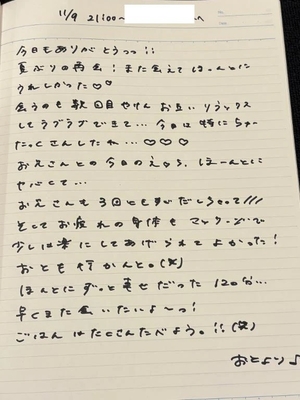 11/9 21:00〜 へ
今日もありがとうっ!!
夏ぶりの再会! また会えてほーんとに
うれしかった♡♡
会うのも数回目やけん お互いリラックス
してラブラブできて… 今日は特にちゅー
たっくさんしたね…♡♡♡
お兄さんとの今日のえ♡ち、ほーんとに
ヤバくて…
お兄さんも3回とも
そしてお疲れの身体もマッサージで
少しは楽にしてあげられてよかった!
おとも行かんと。(笑)
ほんとにずっと幸せだった120分…
早くまた会いたいよ〜っ!
ごはんはたくさんたべよう。!!(笑)
おとより♪